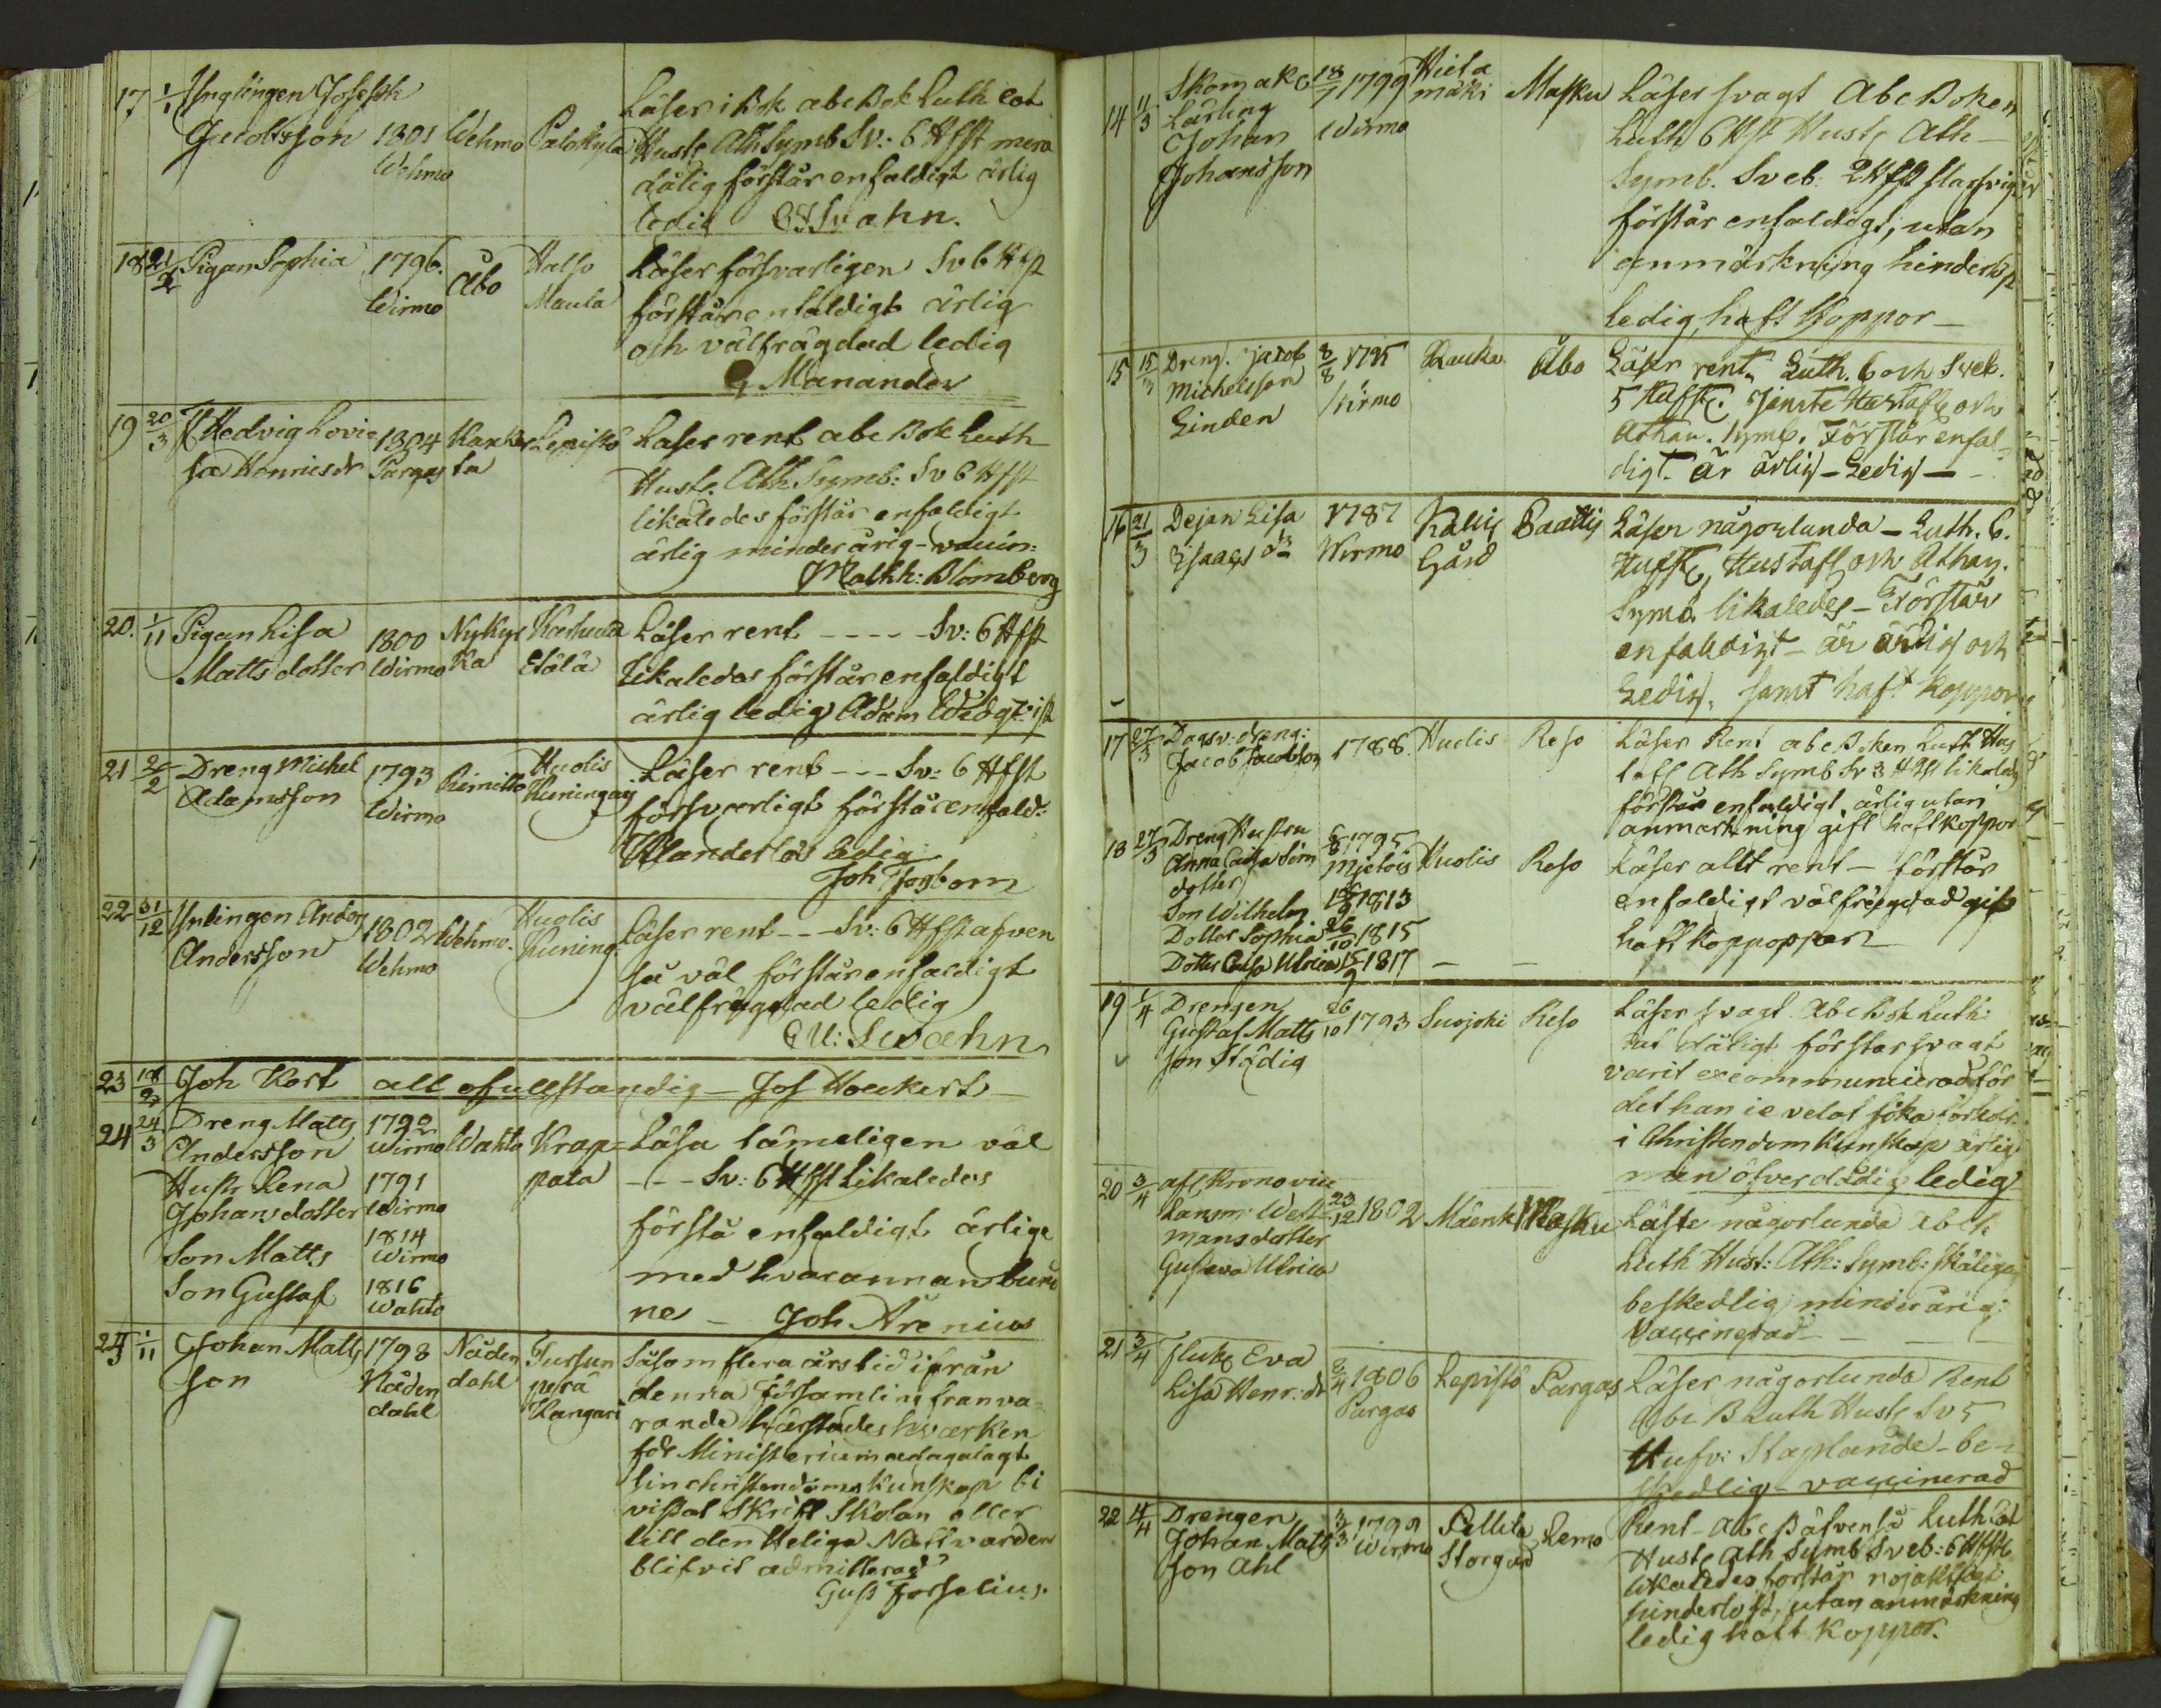 17 1/1 Ynglingen Joseph
Jacobsson 1801 Wehmo Palokyla
Wehmo
Läser i Bok abc Bok Luth Cat
Hustf Ath Symb Sv: 6 Hfst mera
dålig förstår enfaldigt ärlig
ledig Svahn.
18 21/2 Pigan Sophia 1796. Åbo
Wirmo
Maula
Läser försvarligen Sv 6 Hfst
förstår enfaldigt ärlig
och välfrägdad ledig
Manander
19 20/3 Hedvig Lovi
sa Henricsdr 1804 Lepistö
Pargas
Läser rent abc Bok Luth
Hustf. Ath Symb: Sv 6 Hfst
likaledes förstår enfaldigt
ärlig minderårig - vaccin:
Matth: Blomberg
20. 1/11 Pigan Lisa
Matts dotter 1800 Nykyr
Wirmo ka Karhula
Etälä
Läser rent - - - - Sv: 6 Hfst
likaledes förstår enfaldigt
ärlig ledig Adam Wedqvist
21 Dreng Michel
Adamsson 1793 Rimitto Huolis
Wirmo
Läser rent - - - Sv: 6 Hfst
försvarligt förstår enfald:
Klanderlös Ledig
Joh
22 31/12 Ynlingen Anders
Andersson 1802 Wehmo. Huolis
Wehmo
Läser rent - - - Sv: 6 Hfst afven
så väl förstår enfaldigt
välfrägdad ledig
Swahn
23 18/2 Joh Kort all ofullstandig - Jos Hoeckert
24 24/3 Dreng Matts 1792
Andersson Wirmo Wahto Krap=
pata
Hustr Lena 1791
Johansdotter Wirmo
Son Matts 1814
Wirmo
Son Gustaf 1816
Wahto
Läsa tämeligen väl
- - - Sv: 6 Hfst Likaledes
förstå enfaldigt ärlige
med hvarannan
ne - Joh Arenius
1/11 Johan Matts
son 1798 Nåden
dahl
Nåden
dahl
perä
Kangari
Såsom flera års tid ifrån
denna församling franva=
rande hvarken
för Ministerium ådagalagt
sin christendoms kunskap bi
vistat Skrift Skolan eller
till den Heliga Nattvarden
blifvit admitterad
Gust Forselius.
14 11/3 Skomak
Lärling
Johan
Johansson 18/7 1799
Wirmo Hieta
mäki Masku
Läser svagt Abc Boken
Luth 6 Hfst Hustf Ath -
Symb. Sveb: 2 Hfst
förstår enfaldigt, utan
anmärkning hinderlös
Ledig, haft Koppor -
15 15/3 Dreng. Jacob
Michelsson
Linden 8/8 1795
Wirmo Åbo
Läser rent, Luth. 6 och Sveb.
5 Hufst. Jemte Hustafl och
Athan. Symb. Förstår enfal=
digt. är ärlig - Ledig -
16 21/3 Dejan Lisa
Isaacs dr 1787
Wirmo
Gård Paattis
Läser någorlunda - Luth. 6.
Hufst, Hustafl och Athan.
Symb. likaledes - Förstår
enfaldigt - är ärlig och
Ledig, samt haft Koppor
17 27/3 Dagsv: dreng:
Jacob Jacobsson 1788. Huolis Reso
Läser Rent abc Boken Luth Hus
tafl Ath Symb Sv 3 Hfst likaledes
förstår enfaldigt, ärlig utan
anmarkning gift haft koppor
18 27/3 Dreng Hustru
Anna Caisa Sim
dotter 1795
Mietois Huolis Reso
Son Wilhelm 1813
Dotter Sophia 26/10 1815
Dotter Caisa Ulrica 15/9 1817 - -
Läser allt rent - förstår
enfaldigt välfrägdad gift
haft
19 1/4 Drengen
Gustaf Matts
son Stådig 26/10 1793 Suojoki Reso
Läser svagt Abc Bok Luth:
dåligt förstår svagt
varit excommunicerad för
det han ie velat söka förkofr
i Christendoms Kunskap ärlig
men öfverdådig ledig
20 3/4 afl Krono
Länsm:
mansdotter
Gustava Ulrica 23/12 1802 Masku
Läste någorlunda abck
Luth Hust: Ath: Symb:
beskedlig minderårig:
Vaccinerad -
21 3/4 Eva
Lisa Henr: dr 8/4 1806
Pargas Lepistö Pargas
Läser någorlunda Rent
Abc B Luth Hustf Sv 5
Hufv: Staplande - be=
skedlig - vaccinerad
22 4/4 Drengen
Johan Matts
son Ahl 3/3 1799
Wirmo Pellila
Storgård Lemo
Rent - abc B äfvenså Luth Cat
Hustf Ath Symb Sveb: 6 Hfst
likaledes förstår nojaktigt
hinderlöst, utan anmärkning
ledig haft Koppor.